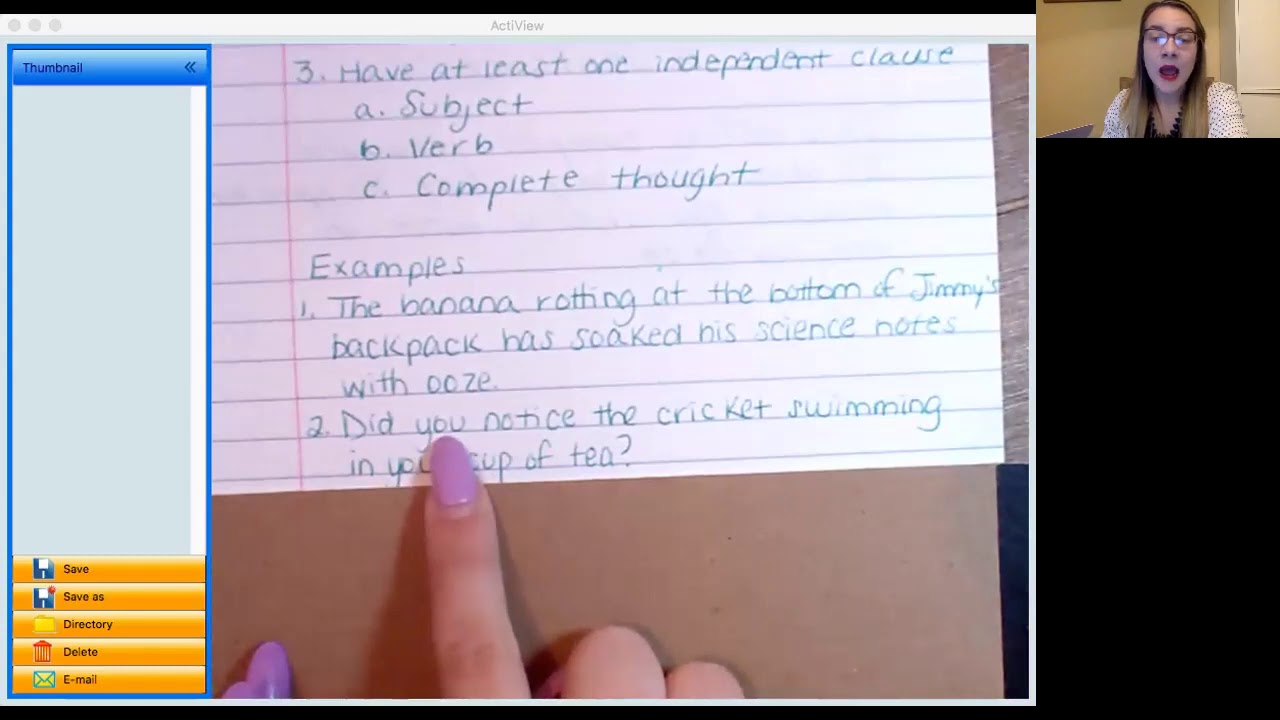 ActiView
Thumbnail
3. Have at least one independent clause
a. Subject
b. Verb
c. Complete thought
Examples
1. The banana rotting at the bottom of Jimmy's
backpack has soaked his science notes
with ooze.
2. Did you notice the cricket swimming
in your cup of tea?
Save
Save as
Directory
Delete
E-mail